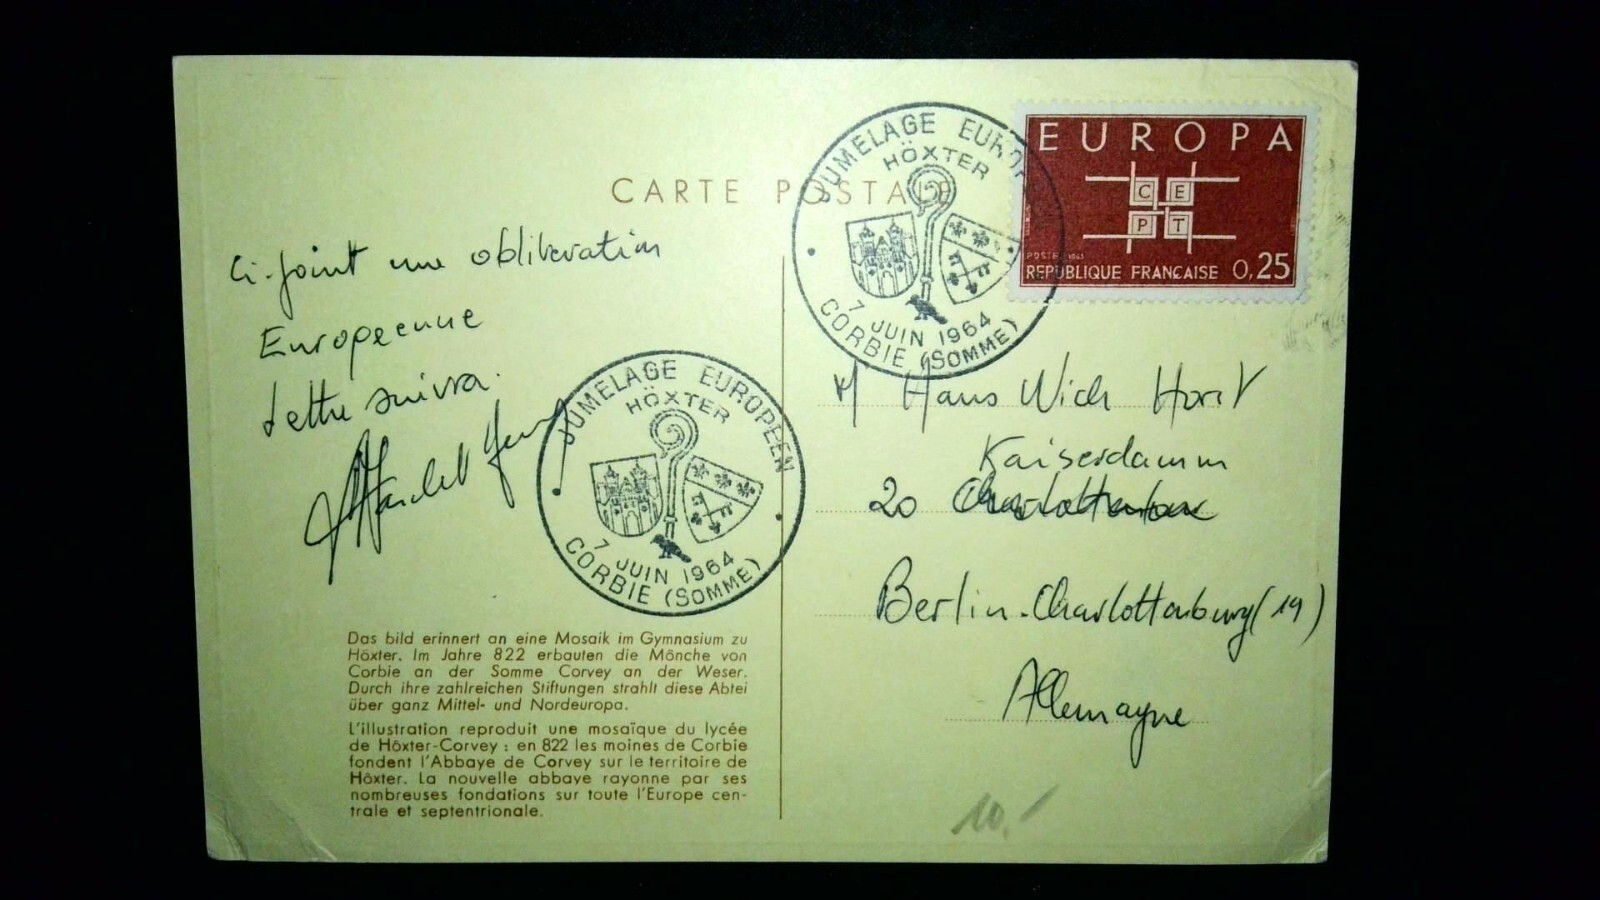 CARTE POSTALE
EUROPA
C E
P T
POSTES 1963
RÉPUBLIQUE FRANÇAISE 0,25
JUMELAGE EUROPÉEN
HÖXTER
7 JUIN 1964
CORBIE (SOMME)
Ci-joint une obliteration
Europeenne
Lettre suivra.
JUMELAGE EUROPÉEN
HÖXTER
7 JUIN 1964
CORBIE (SOMME)
M Hans Wich Horst
Kaiserdamm
20
Berlin-Charlottenburg (19)
Allemagne
Das bild erinnert an eine Mosaik im Gymnasium zu
Höxter. Im Jahre 822 erbauten die Mönche von
Corbie an der Somme Corvey an der Weser.
Durch ihre zahlreichen Stiftungen strahlt diese Abtei
über ganz Mittel- und Nordeuropa.
L'illustration reproduit une mosaïque du lycée
de Höxter-Corvey : en 822 les moines de Corbie
fondent l'Abbaye de Corvey sur le territoire de
Höxter. La nouvelle abbaye rayonne par ses
nombreuses fondations sur toute l'Europe cen-
trale et septentrionale.
10.-